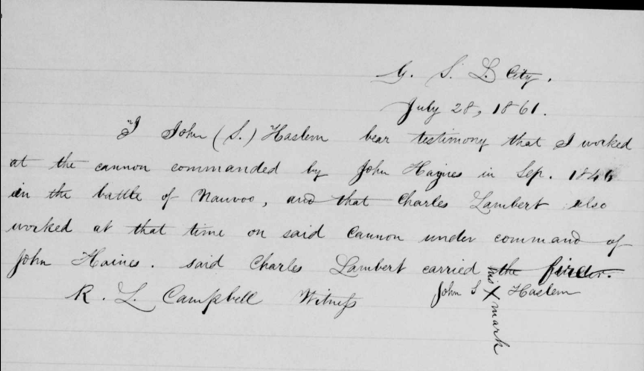 G. S. L. City.
July 28, 1861.
"I John (S.) Haslem bear testimony that I worked
at the cannon commanded by John Haines in Sep. 1846
in the battle of Nauvoo, and that Charles Lambert also
worked at that time on said Cannon under command of
John Haines. said Charles Lambert carried the
R. L. Campbell Witness John S. his X mark Haslem